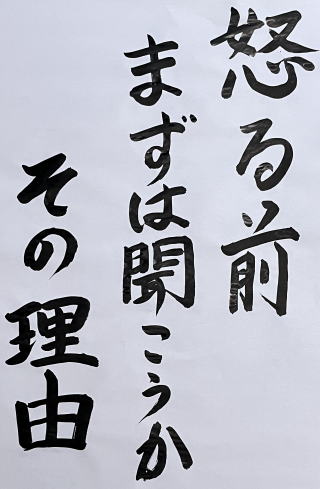 怒る前
まずは聞こうか
その理由